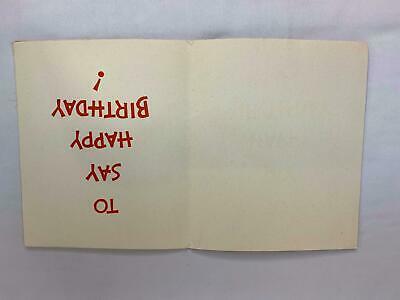 TO
SAY
HAPPY
BIRTHDAY
!